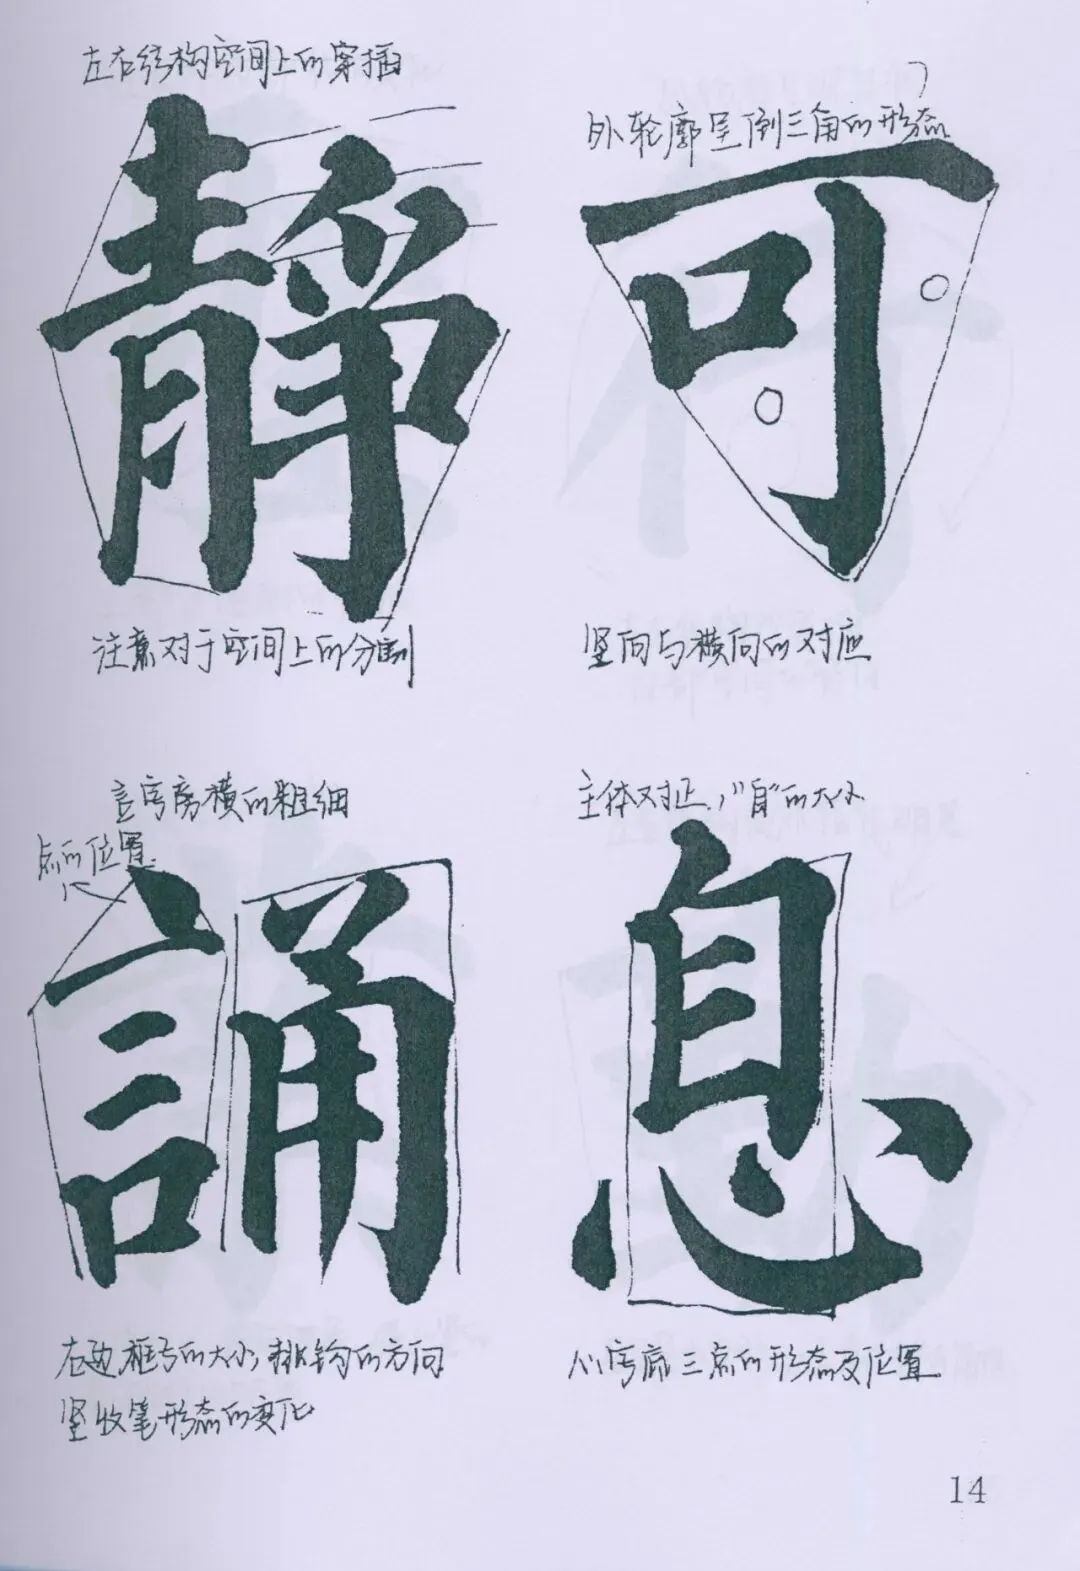 左右结构空间上的穿插
静
注意对于空间上的分割
外轮廓呈倒三角的形态
可
竖向与横向的对应
言字旁横的粗细
点的位置
誦
右边框与的大小,挑钩的方向
竖收笔形态的变化
主体对正,"自"的大小
息
心字底三点的形态及位置
14